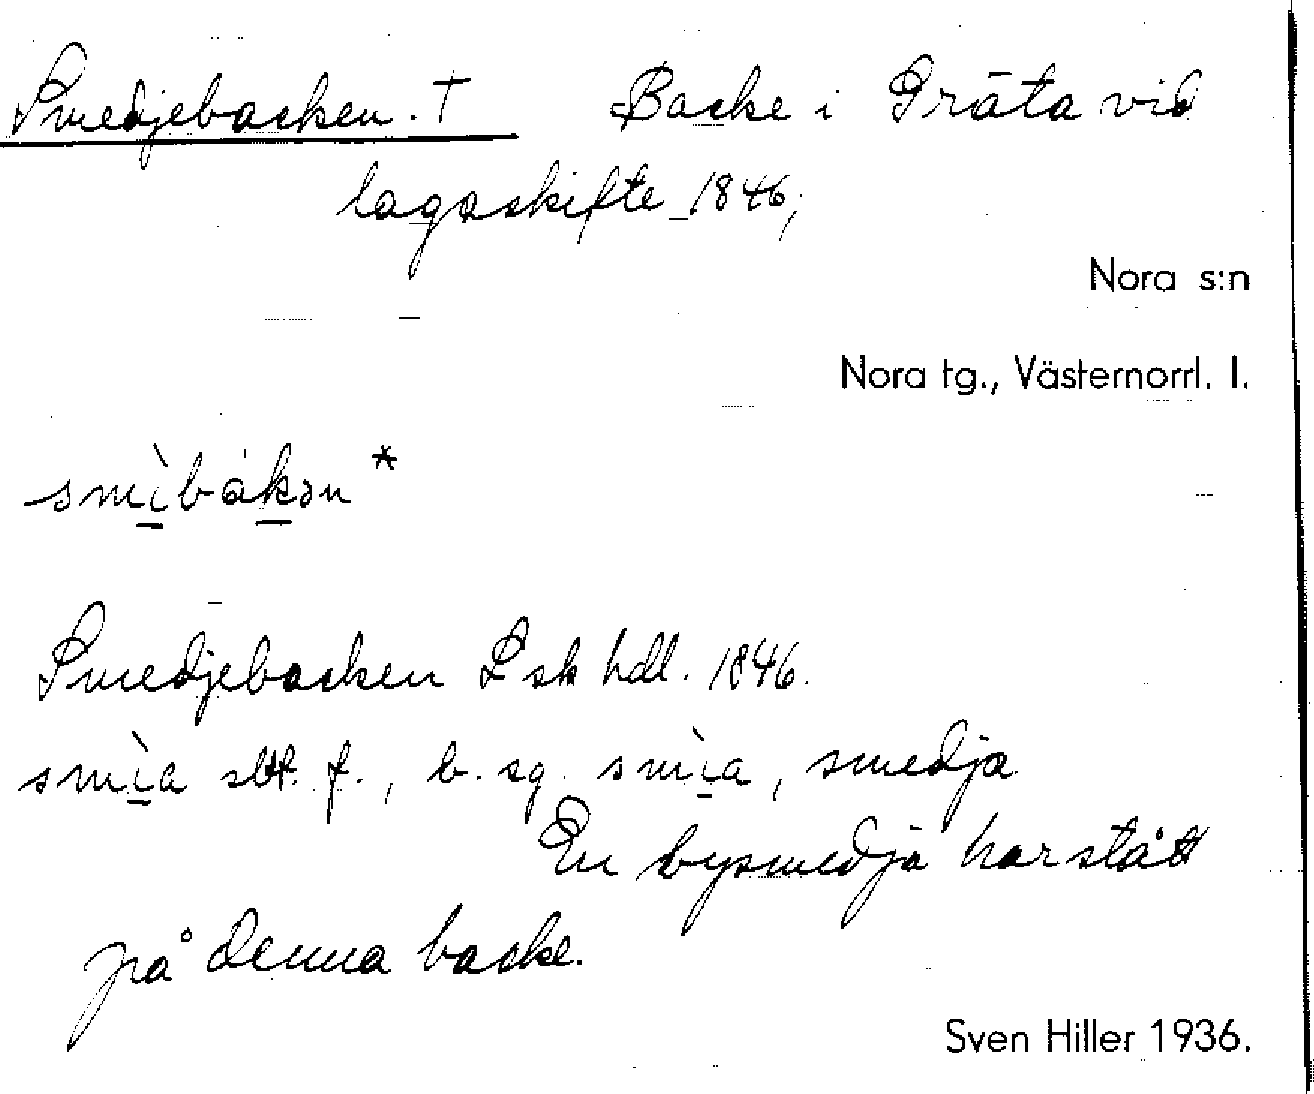 Smedjebacken. † Backe i Gräta vid
lagaskifte 1846;
Nora s:n
Nora tg., Västernorrl. l.
smì̠bák̠ən *
Smedjebacken Lsk hdl. 1846.
smì̠a stf. f., b. sg. smì̠a, smedja
En bysmedja har stått
på denna backe.
Sven Hiller 1936.